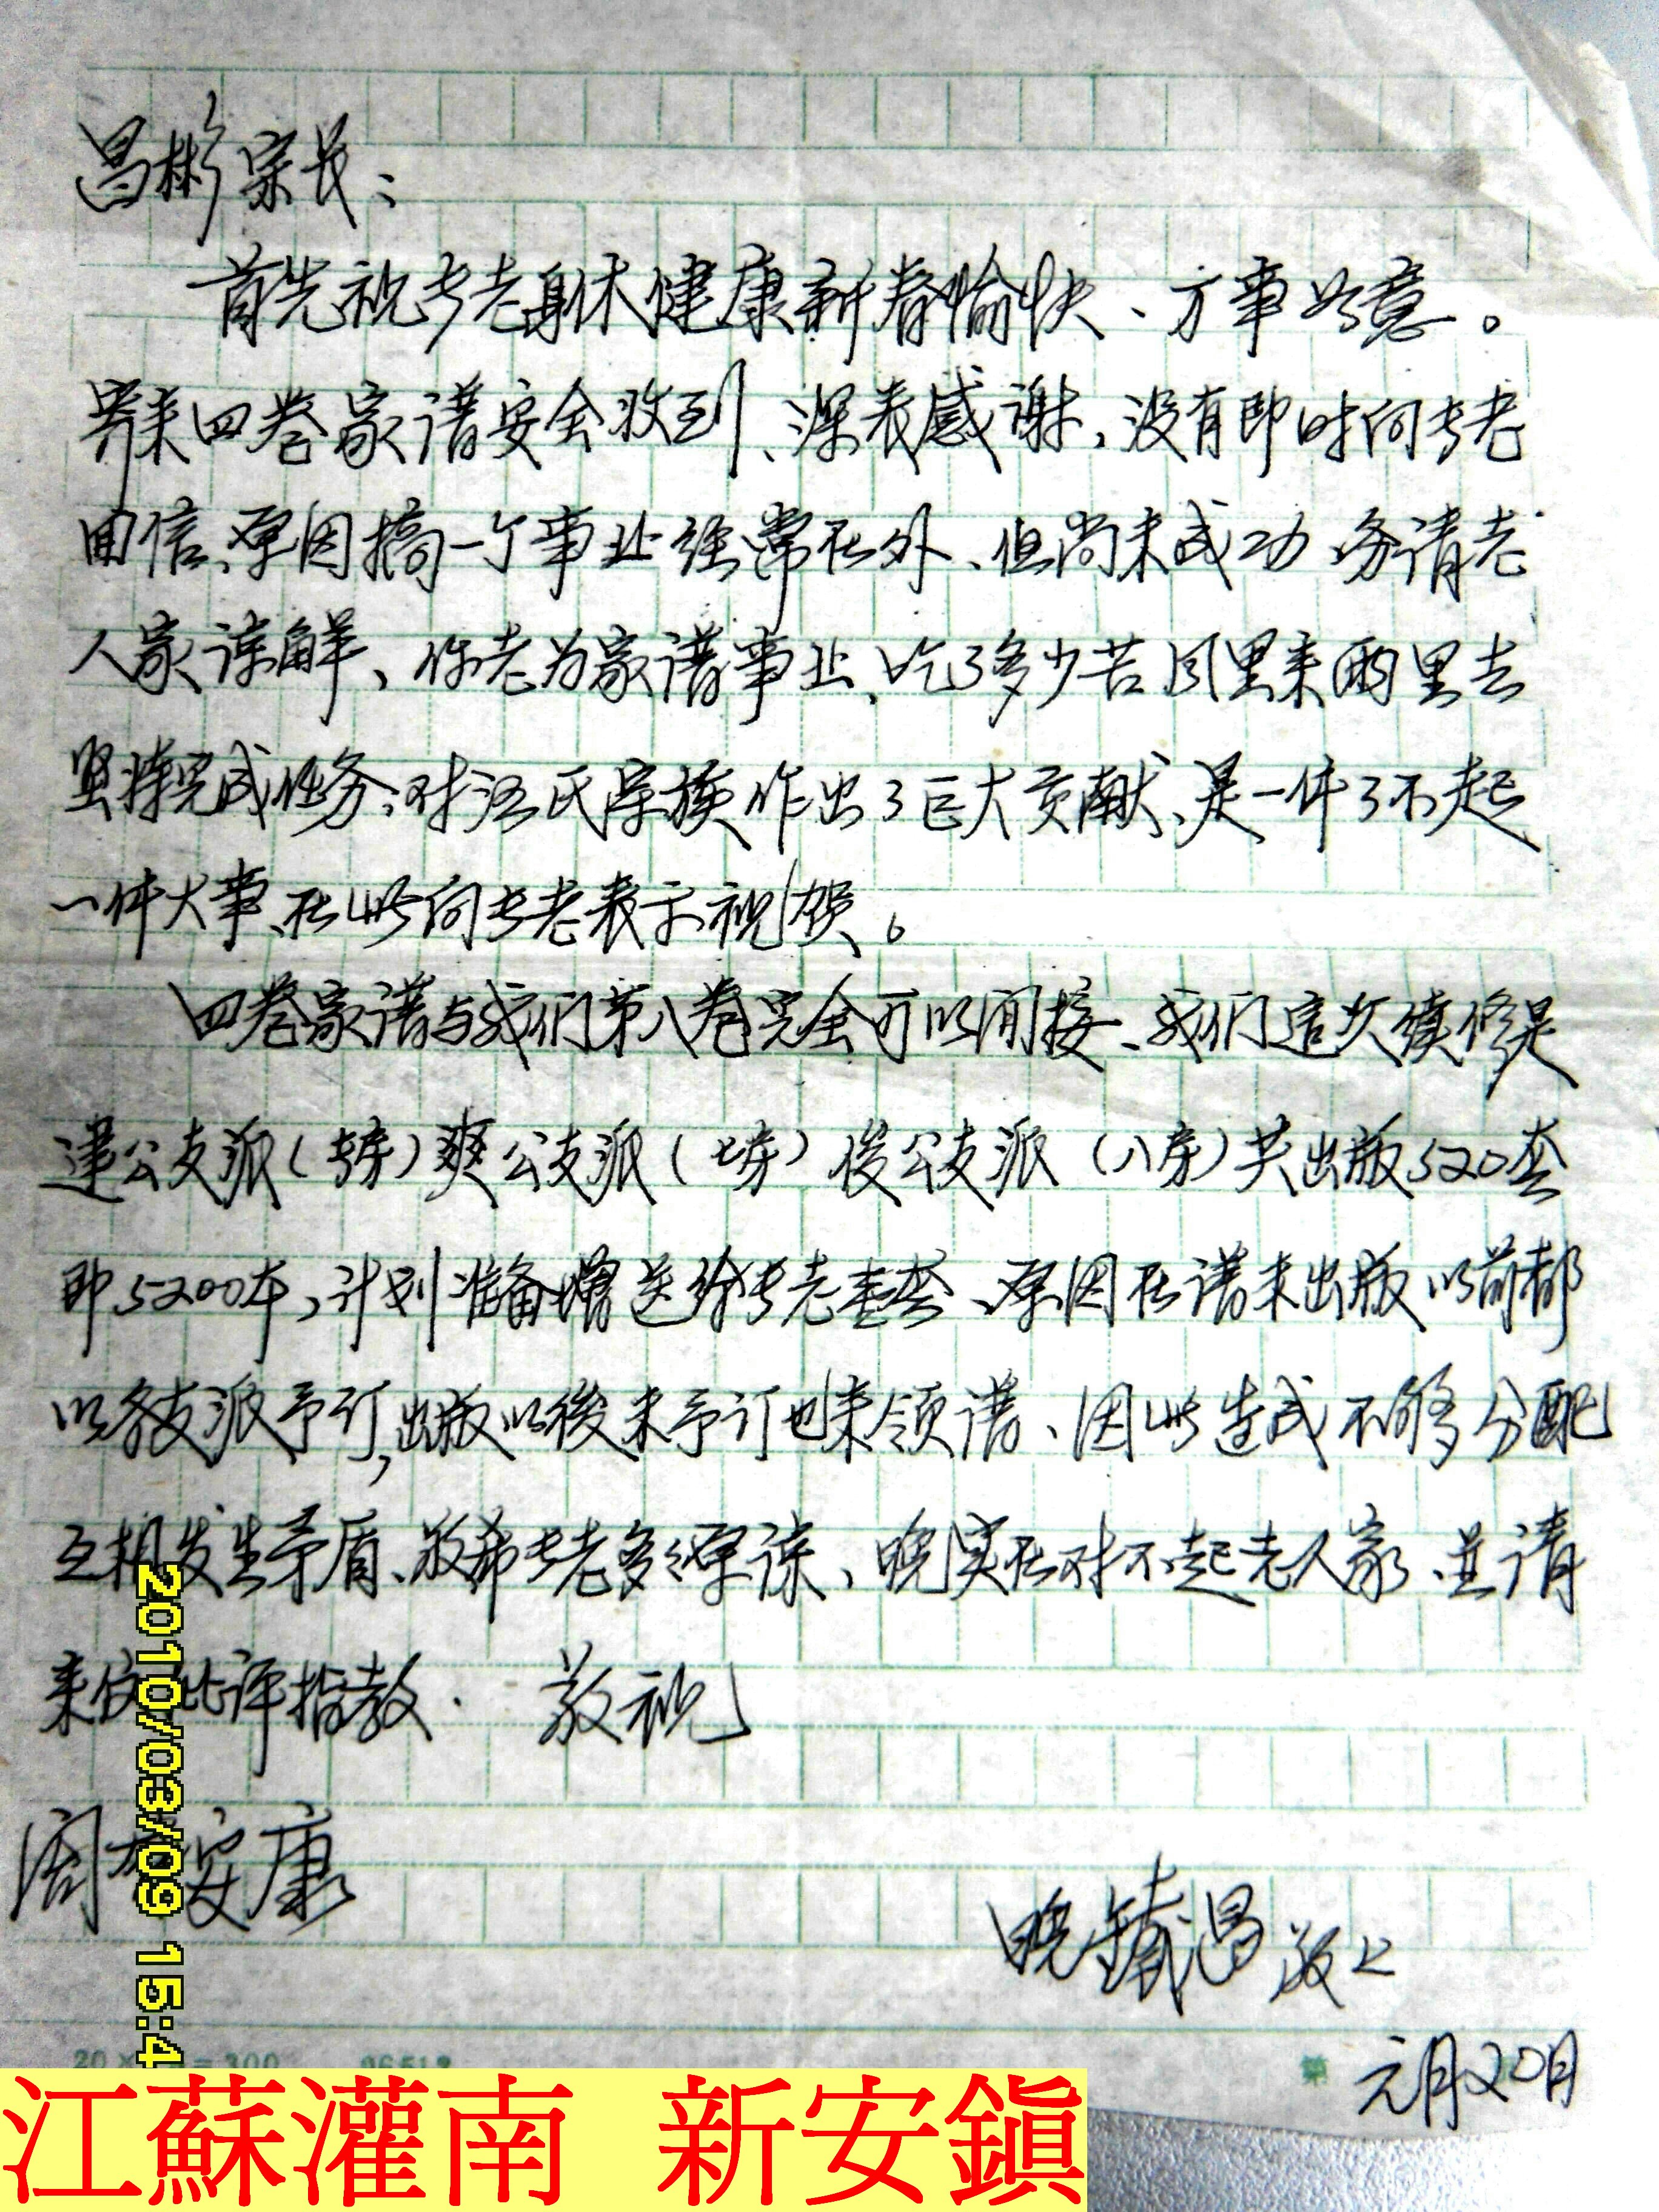 昌彬宗长：
首先祝贵老身体健康新春愉快、万事如意。
寄来四卷家谱安全收到、深表感谢，没有即时向贵老
回信、原因搞一个事业经常在外、但尚未成功、务请老
人家谅解、你老为家谱事业、吃了多少苦风里来雨里去
坚持完成任务；对汪氏宗族作出了巨大贡献、是一件了不起
一件大事、在此向贵老表示祝贺。
四卷家谱与我们第八卷完全可以间接、我们这次续修是
建公支派（房）爽公支派（七房）俊公支派（八房）共出版520套
即5200本，计划准备赠送给贵老壹套、原因在谱未出版以前都
以各支派予订，出版以後未予订也来领谱、因此造成不够分配
互相发生矛盾、故希贵老多多原谅、晚实在对不起老人家、并请
来信批评指教. 敬祝
阖府安康
晚 昌敬上
元月20日
2010/03/09 15:4
20 × = 300
第
江蘇灌南 新安鎮